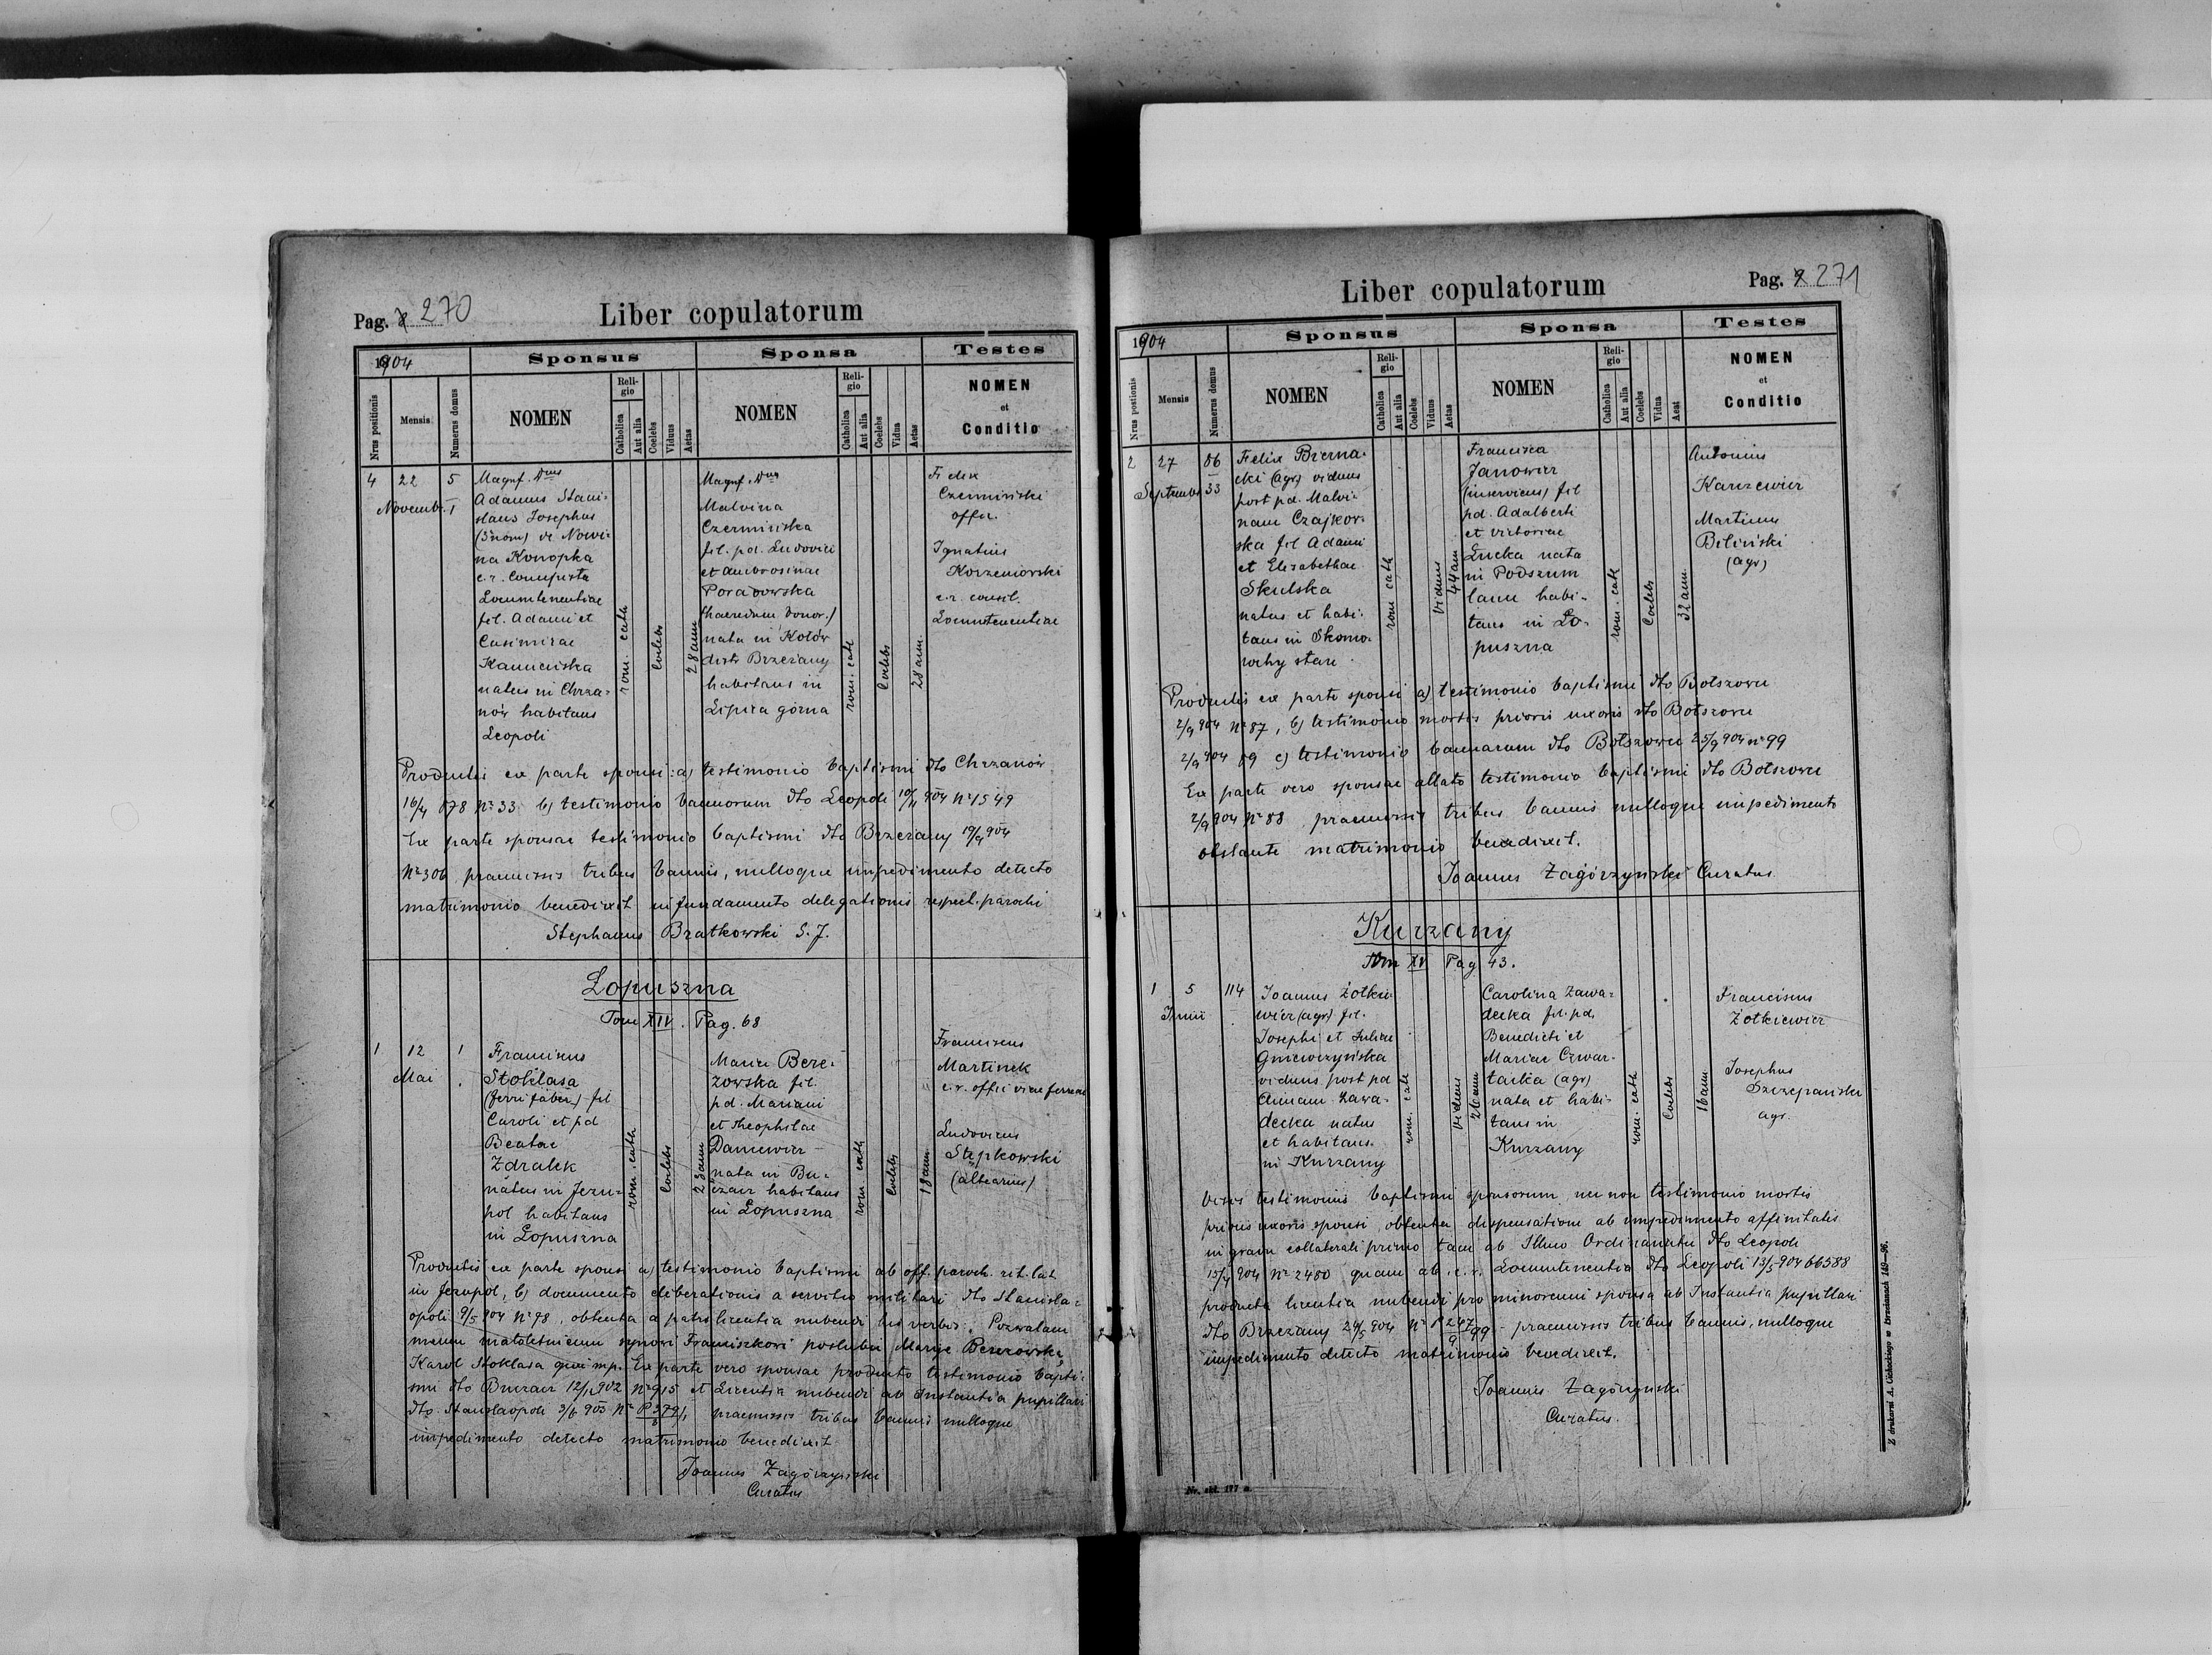 Pag. 270
Liber copulatorum
1904
Sponsus
Sponsa
Testes
Nrus positionis
Mensis
Numerus domus
NOMEN
Religio
Catholica
Aut alia
Coelebs
Viduus
Aetas
NOMEN
Religio
Catholica
Aut alia
Coelebs
Vidua
Aetas
NOMEN
et
Conditio
4
22
Novemb.
5
I
Magnf. Dnus
Adamus Stani-
slaus Josephus
(3 nom) de Nowi-
na Konopka
c.r. Concipista
Locumtenentiae
fil. Adami et
Casimirae
Kamieńska
natus in Chrza-
nów habitans
Leopoli
rom. cath
Coelebs
28 ann
Magnf. Dna
Malvina
Czermińska
fil. pd. Ludovici
et Ambrosinae
Poradowska
(haeredum bonor.)
nata in Kotów
distr Brzeżany
habitans in
Lipica górna
rom. cath
Coelebs
28 ann.
Felix
Czermiński
offic.
Ignatius
Korzeniowski
c.r. consil.
Locumtenentiae
Productis ex parte sponsi: a) testimonio baptismi dto Chrzanów
16/4 878 No 33 b) testimonio bannorum dto Leopoli 10/11 904 No 1549
Ex parte sponsae testimonio baptismi dto Brzeżany 19/9 904
No 306 praemissis tribus bannis, nulloque impedimento detecto
matrimonio benedixit in fundamento delegationis respect. parochi
Stephanus Bratkowski S.J.
Lopuszna
Tom XIV. Pag. 68
1
12
Mai
1
Franciscus
Stoklasa
(ferri faber) fil
Caroli et pd
Beatae
Zdralek
natus in Jezu-
pol habitans
in Lopuszna
rom. cath
Coelebs
23 ann
Maria Bere-
zowska fil.
pd. Mariani
et Theophilae
Daniewicz
nata in Bu-
czacz habitans
in Lopuszna
rom cath
Coelebs
18 ann
Franciscus
Martinek
c.r. offic viae ferreae
Ludovicus
Stępkowski
Productis ex parte sponsi a) testimonio baptismi ab off. paroch. rit. lat
in Jezupol, b) documento deliberationis a servitio militari dto Stanisla-
opoli 9/5 904 No 98, obtenta a patre licentia nubendi his verbis: Pozwalam
memu małoletniemu synowi Franciszkowi poślubić Maryę Berezowską
Karol Stoklasa mp. Ex parte vero sponsae producto testimonio bapti-
smi dto Buczacz 12/1 902 No 915 et licentia nubendi ab Instantia pupillari
dto Stanislaopoli 3/6 903 No praemissis tribus bannis nulloque
impedimento detecto matrimonio benedixit
Joannes Zagórzyński
Curatus
Liber copulatorum
Pag. 271
1904
Sponsus
Sponsa
Testes
Nrus postionis
Mensis
Numerus domus
NOMEN
Religio
Catholica
Aut alia
Coelebs
Viduus
Aetas
NOMEN
Religio
Catholica
Aut alia
Coelebs
Vidua
Aest
NOMEN
et
Conditio
2
27
Septembr
86
33
Felix Bierna-
cki (agr) viduus
post pd. Malvi-
nam Czajkow-
ska fil Adami
et Elisabethae
Skulska
natus et habi-
tans in Skomo-
rochy stare
rom cath
Viduus
44 ann
Francisca
Janowicz
(inserviens) fil
pd. Adalberti
et Victoriae
Lucka nata
in Podszum
lanu habi-
tans in Lo-
puszna
rom. cath
Coelebs
32 ann.
Antonius
Karczewicz
Martinus
Biliński
(agr)
Productis ex parte sponsi a) testimonio baptismi dto Botszowu
2/9 904 No 87, b) testimonio mortis prioris uxoris dto Botszowu
2/9 904 89 c) testimonio bannorum dto Botszowu 25/9 904 No 99
Ex parte vero sponsae allato testimonio baptismi dto Botszowu
2/9 904 No 88 praemissis tribus bannis nulloque impedimento
obstante matrimonio benedixit.
Joannes Zagórzyński Curatus
Kurzany
Tom XV Pag 43.
1
5
Junii
114
Joannes Żołkie-
wicz (agr) fil.
Josephi et Juliae
Gniewczyńska
viduus post pd
Annam Zawa-
decka natus
et habitans
in Kurzany
rom. cath
Viduus
26 ann
Carolina Zawa-
decka fil. pd.
Benedicti et
Mariae Czwar-
tacka (agr)
nata et habi-
tans in
Kurzany
rom. cath
Coelebs
16 ann
Franciscus
Żołkiewicz
Josephus
Szczepański
agr.
Visis testimoniis baptismi sponsorum, nec non testimonio mortis
prioris uxoris sponsi, obtenta dispensatione ab impedimento affinitatis
in gradu collaterali primo tam ab Illmo Ordinariatu dto Leopoli
15/4 904 No 2480 quam ab c.r. Locumtenentia dto Leopoli 13/5 904 66588
producta licentia nubendi pro minorenni sponsa ab Instantia pupillari
dto Brzeżany 24/5 904 No P 247/9 99 - praemissis tribus bannis, nulloque
impedimento detecto matrimonio benedixit.
Joannes Zagórzyński
Curatus.
Z drukarni A. Cichockiego w Brzeżanach 149-96.